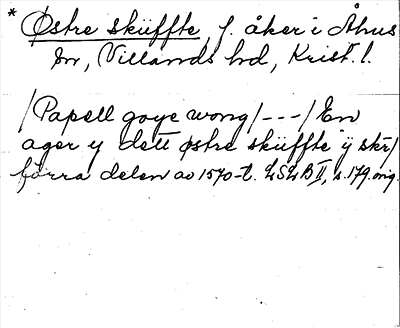 * Østre skùffte, f. åker i Åhus
sn, Villands hd, Krist. l.
/Papell goye wong/---/En
ager y dett østre skùffte ÿ skr/
förra delen av 1570-t. LSLB II, s. 179. orig.